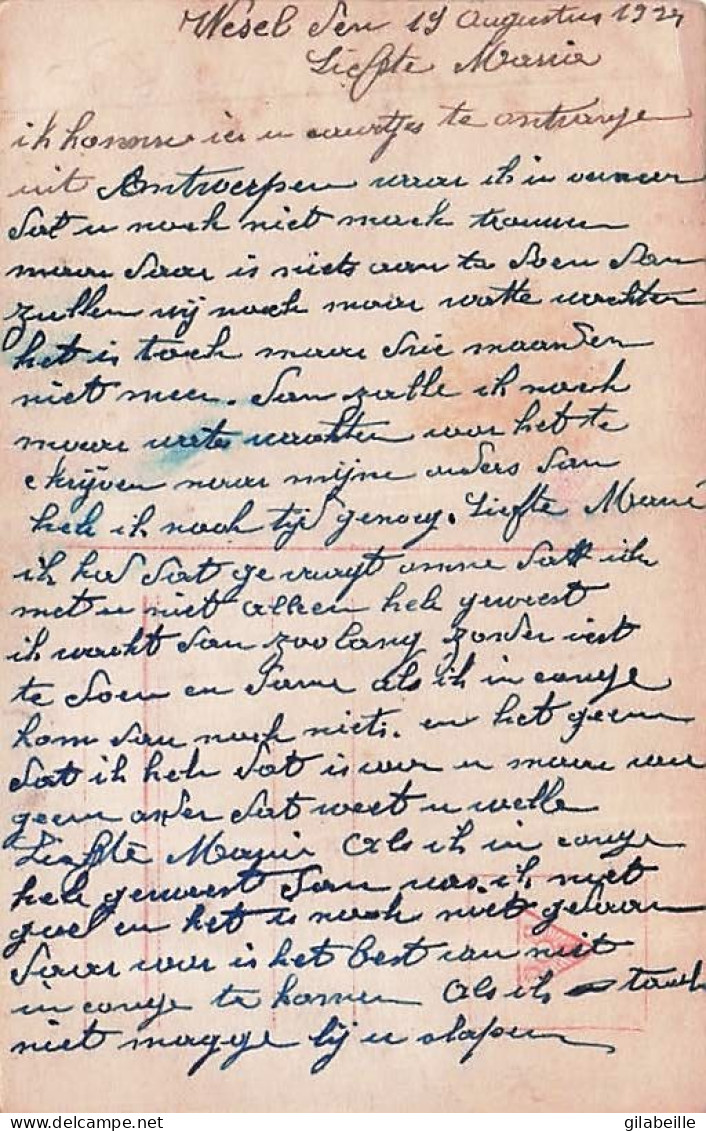 Wesel den 19 Augustus 192
Liefste Maria
ik komme u caartjes te ontvange
uit Antwerpen waar ik in verneer
dat u noch niet mach trouwen
maar daar is niets aan ta doen dan
zullen wij noch maar watte wachten
het is toch maar drie maanden
niet meer. dan zalle ik noch
maar wates wachten voor het te
skrijven naar mijne ouders dan
heb ik noch tijd genoeg. Liefte Mari
ik had dat gevraagt omme dat ik
met u niet alleen heb geweest
ik wacht dan zoolang zonder iest
te doen en dame als ik in conge
kom dan noch niets. en het geen
dat ik heb dat is voor u maar voor
geen ander dat weet u welle
Liefste Maria Als ik in conge
heb geweest dan was ik niet
goe en het is noch niet gedaan
daar voor is het best van niet
in conge te komen Als ik toch
niet magge bij u slapen
gilabeille